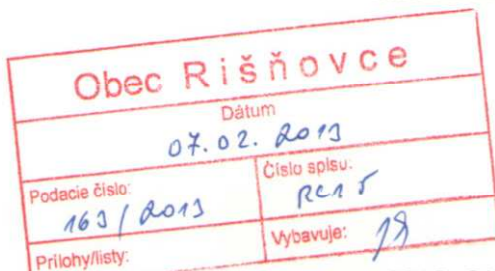 Obec Rišňovce
Dátum
07.02.2013
Podacie číslo:
163/2013
Číslo spisu:
Prílohy/listy:
Vybavuje: